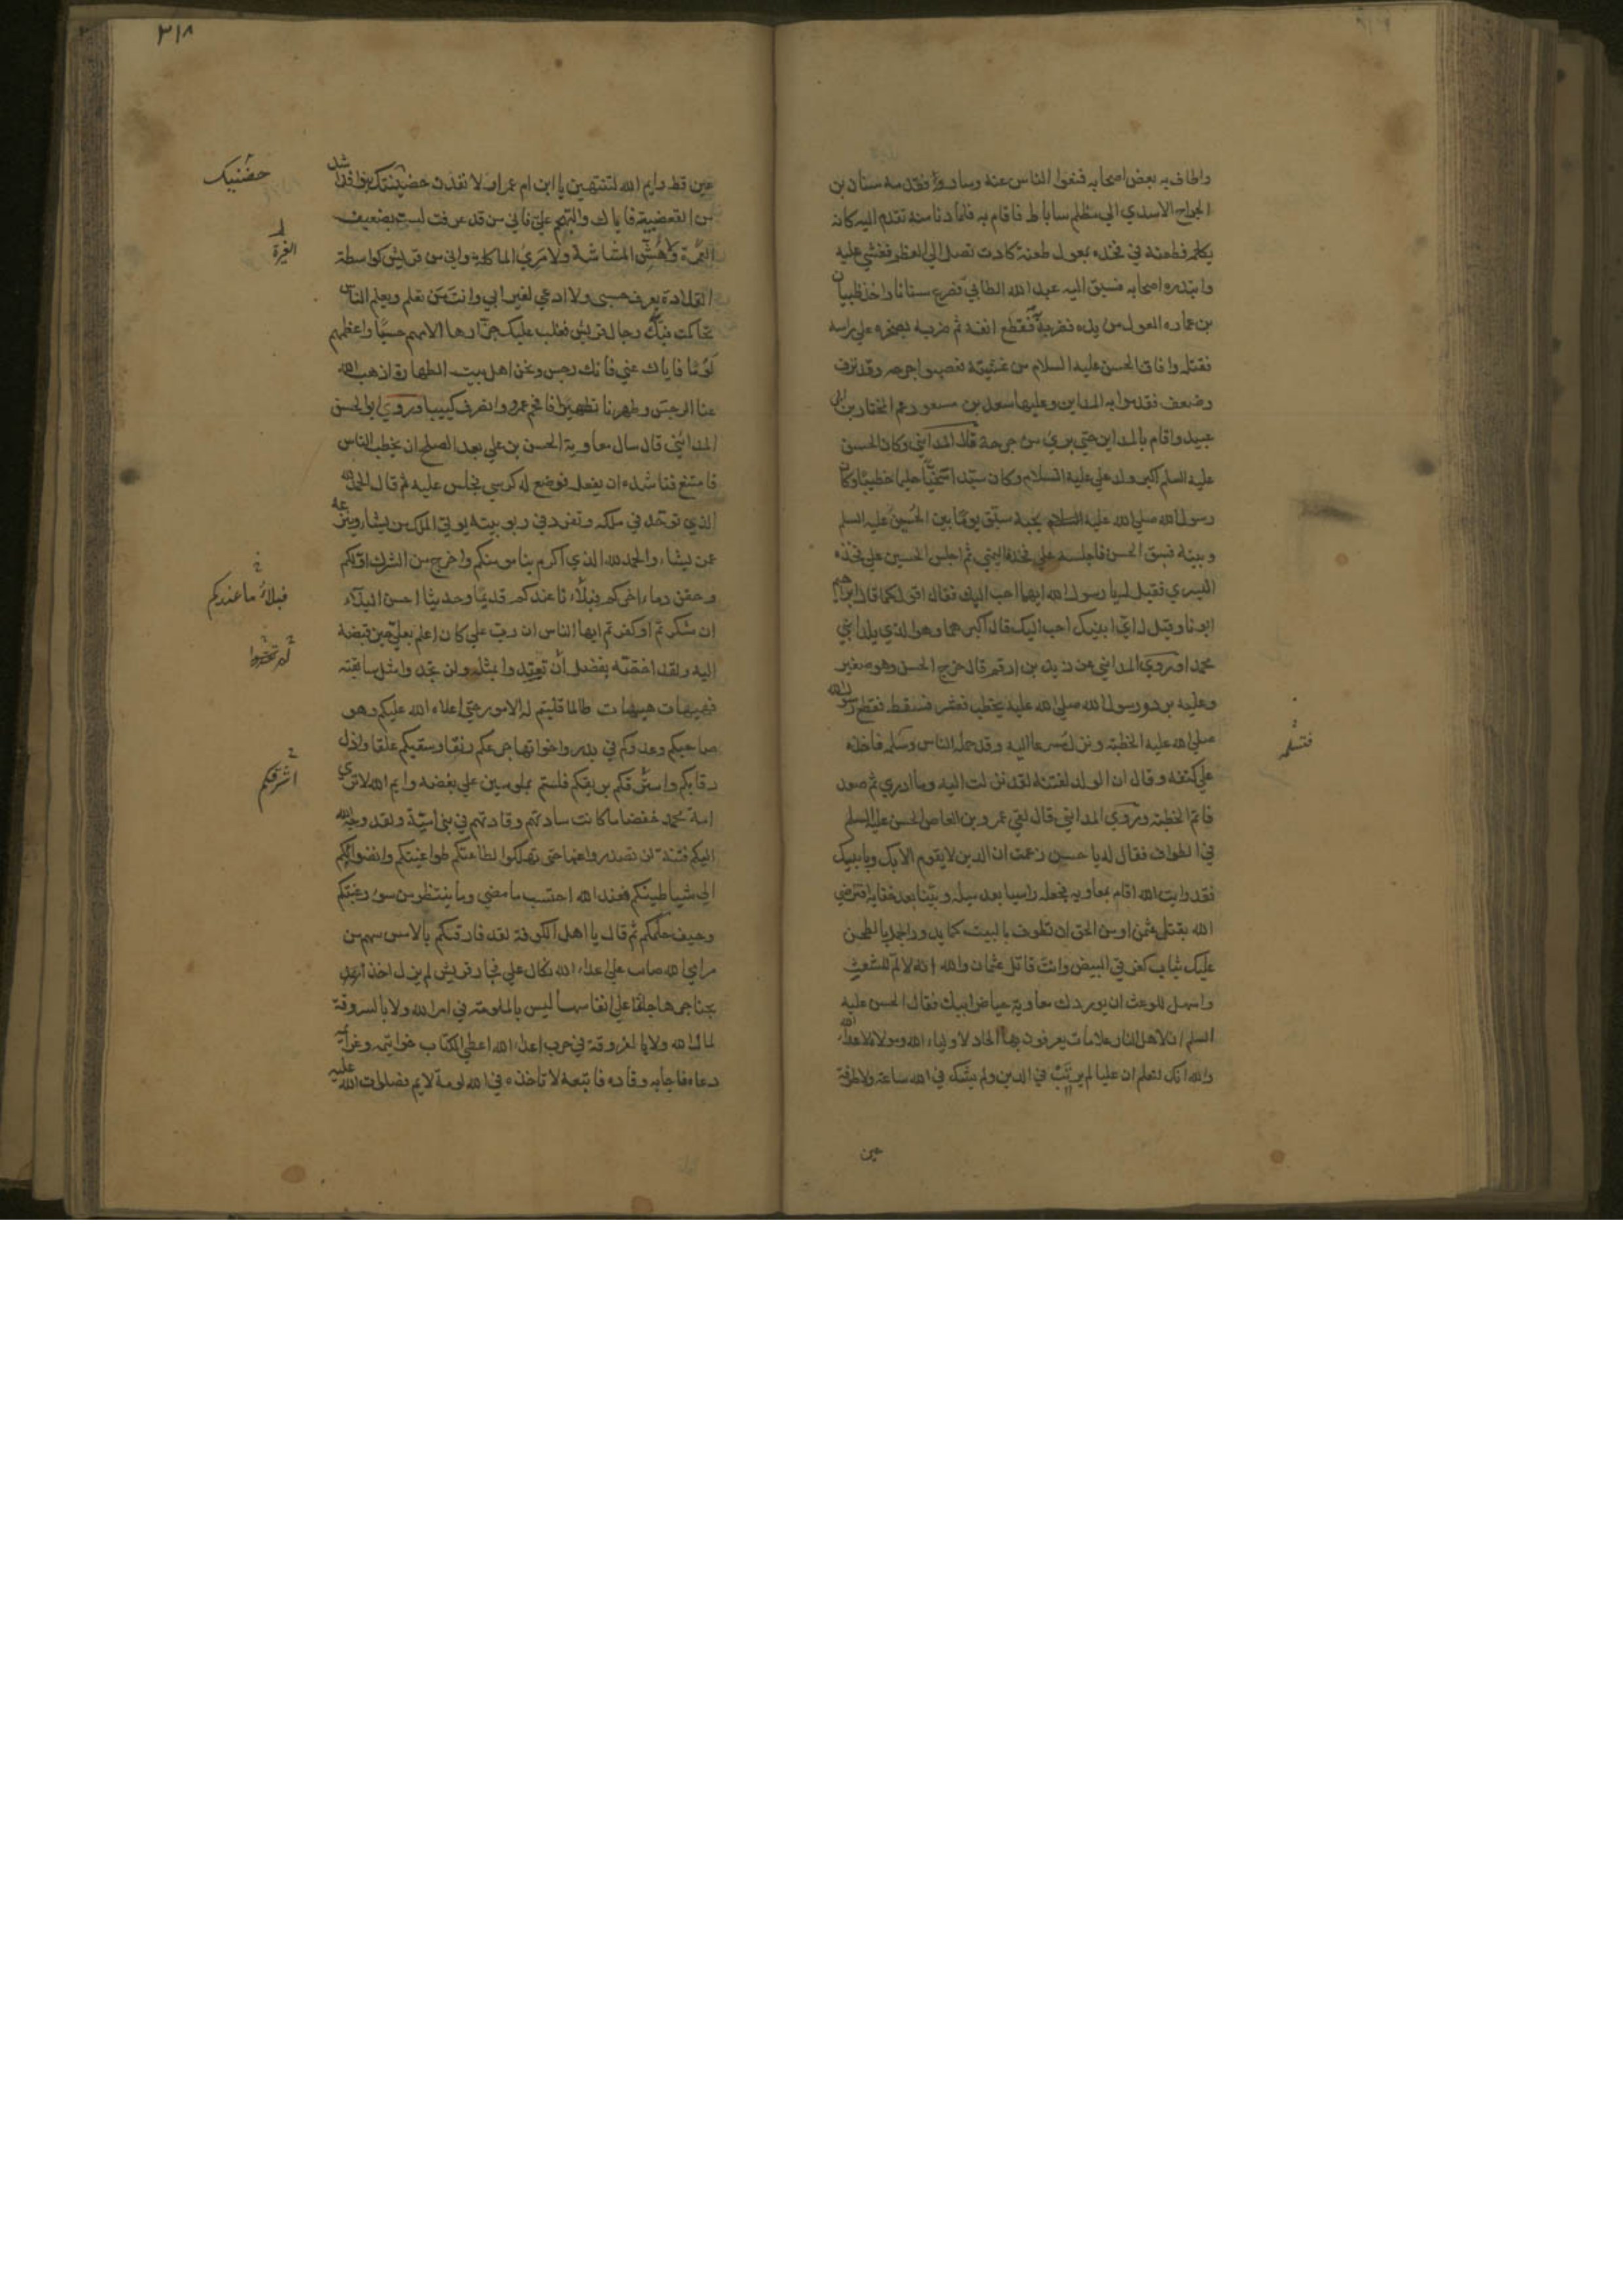 واطاف به بعض اصحابه فنحوا الناس عنه وساروا فقدمه سنان بن
الجراح الاسدي الى مظلم ساباط فاقام به فلما دنا منه تقدم اليه كانه
يكلمه فطعنه في فخذه بمعول طعنة كادت تصل الى العظم فغشي عليه
وابتدره اصحابه فسبق اليه عبد الله الطائي فصرع سنانا واخذ ظبيان
بن عماره المعول من يده فضربه به فقطع انفه ثم ضربه بصخرة على راسه
فقتله وافاق الحسن عليه السلام من غشيته فعصبوا جرحه وقد نزف
وضعف فقدموا به المداين وعليها سعد بن مسعود عم المختار بن ابي
عبيد واقام بالمداين حتى بري من جرحه قال المدائني وكان الحسن
عليه السلم اكبر ولد علي عليه السلام وكان سيدا سخيا حليما خطيبا وكان
رسول الله صلى الله عليه السلام يحبه سبق يوما بين الحسين عليه السلم
وبينه فسبق الحسن فاجلسه على فخذه اليمنى ثم اجلس الحسين على فخذه
اليسري فقيل له يا رسول الله ايهما احب اليك فقال اقول كما قال ابراهيم
ابونا وقيل له اي ابنيك احب اليك قال اكبرهما وهو الذي يلد ابني
محمدا وروي المدايني عن زيد بن ارقم قال خرج الحسن وهو صغير
وعليه برد ورسول الله صلى الله عليه يخطب فعثر فسقط فقطع رسول الله
صلى الله عليه الخطبة ونزل مسرعا اليه وقد حمله الناس وسلم فاخذه
فتسلمه
على كتفه وقال ان الولد لفتنة لقد نزلت اليه وما ادري ثم صعد
فاتم الخطبة وروي المدايني قال لقي عمرو بن العاص الحسن عليه السلم
في الطواف فقال له يا حسن زعمت ان الدين لا يقوم الا بك وبابيك
فقد رايت الله اقام بمعاويه فجعله راسيا بعد ميله وبينا بعد خفايه افترضي
الله بقتل عثمن او من الحق ان تطوف بالبيت كما يدور الجمل بالطحن
عليك ثياب كغرقي البيض وانت قاتل عثمان والله انه لالم للشعث
واسهل للوعث ان يوردك معاوية حياض ابيك فقال الحسن عليه
السلم ان لاهل النار علامات يعرفون بها الحاد لاولياء الله وموالاة لاعداء الله
والله انك لتعلم ان عليا لم يرتب في الدين ولم يشك في الله ساعة ولا طرفة
عين
٣١٨
عين قط وايم الله لتنتهين يا ابن ام عمرو او لانفذن حضنيك بنوافذ اشد
حضنيك
من القعضبية فاياك والتهجم علي فاني من قد عرفت لست بضعيف
الغمزة ولا هش المشاشة ولا مري الماكلة واني من قريش كواسطة
القلادة يعرف حسبي ولا ادعي لغير ابي وانت من تعلم ويعلم الناس
تحاكمت فيك رجال قريش فغلب عليك جزارها الامهم حسبا واعظمهم
لوما فاياك عني فانك رجس ونحن اهل بيت الطهارة اذهب الله
عنا الرجس وطهرنا تطهيرا فافحم عمرو وانصرف كييبا وروي ابو الحسن
المدائني قال سال معاوية الحسن بن علي بعد الصلح ان يخطب الناس
فامتنع فناشده ان يفعل فوضع له كرسي فجلس عليه ثم قال الحمد لله
الذي توحد في ملكه وتفرد في ربوبيته يوتي الملك من يشا وينزعه
عمن يشاء والحمد لله الذي اكرم بنا مومنكم واخرج من الشرك اولكم
وحقن دماء اخركم فبلاؤنا عندكم قديما وحديثا احسن البلاء
فبلاء ما عندكم
ان شكرتم او كفرتم ايها الناس ان رب علي كان اعلم بعلي حين قبضه
اليه ولقد اختصه بفضل ان تعتدوا بمثله ولن تجدوا مثل سابقته
فهيهات هيهات طالما قلبتم له الامور حتى اعلاه الله عليكم وهو
صاحبكم وعدوكم في بدر واخواتها جرعكم رنقا وسقيكم علقا واذل
رقابكم واشرقكم بريقكم فلستم بملومين على بغضه وايم الله لا تري
اشرقكم
امة محمد خفضا ما كانت سادتهم وقادتهم في بني امية ولقد وجه الله
اليكم فتنة لن تصدروا عنها حتى تهلكوا لطاعتكم طواغيتكم وانضوايكم
الى شياطينكم فعند الله احتسب ما مضى وما ينتظر من سوء رعتكم
وحيف حكمكم ثم قال يا اهل الكوفة لقد فارقكم بالامس سهم من
مرامي الله صايب على اعداء الله نكال على فجار قريش لم يزل اخذا
بحناجرها جاثما على انفاسها ليس بالملومة في امر الله ولا بالسروقة
لمال الله ولا بالفروقة في حرب اعداء الله اعطي الكتاب خواتيمه وعزائمه
دعاه فاجابه وقاده فاتبعه لا تاخذه في الله لومة لايم فصلوات الله عليه